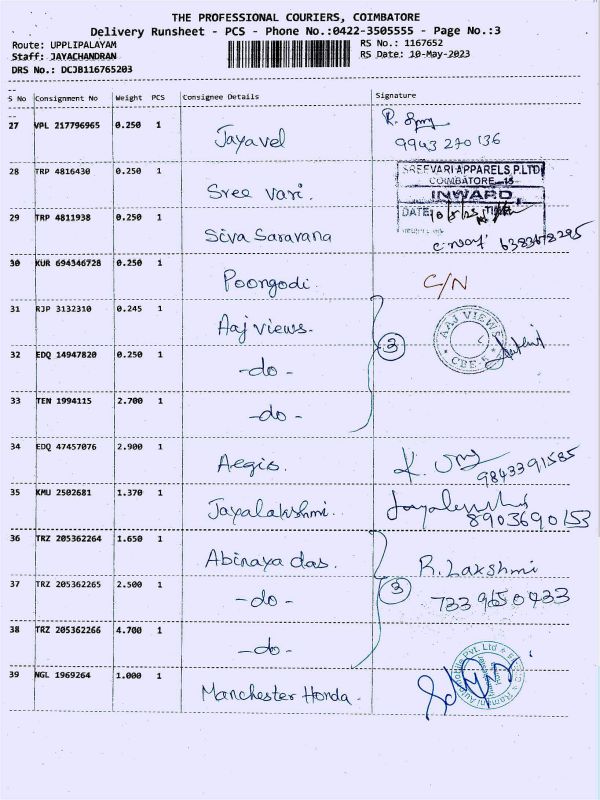 THE PROFESSIONAL COURIERS, COIMBATORE
Delivery Runsheet - PCS - Phone No.:0422-3505555 - Page No.:3
Route: UPPLIPALAYAM RS No.: 1167652
Staff: JAYACHANDRAN RS Date: 10-May-2023
DRS No.: DCJB116765203
S No Consignment No Weight PCS Consignee Details Signature
27 VPL 217796965 0.250 1 Jayavel R.
9943 270 136
28 TRP 4816430 0.250 1 Sree vari. SREEVARI APPARELS P.LTD
COIMBATORE-15
INWARD
DATE: 10/5/23 TIME
29 TRP 4811938 0.250 1 Siva Saravana 6383678295
30 KUR 694346728 0.250 1 Poongodi. C/N
31 RJP 3132310 0.245 1 Aaj views. AAJ VIEWS
CBE-5
32 EDQ 14947820 0.250 1 -do- 3
33 TEN 1994115 2.700 1 -do-
34 EDQ 47457076 2.900 1 Aegis. K.
9843391585
35 KMU 2502681 1.370 1 Jayalakshmi. Jayalakshmi
8903690153
36 TRZ 205362264 1.650 1 Abinaya das. R. Laxshmi
37 TRZ 205362365 2.500 1 -do- 3 733 9650433
38 TRZ 205362266 4.700 1 -do-
39 NGL 1969264 1.000 1 Manchester Honda. Ramani Automobile Pvt. Ltd